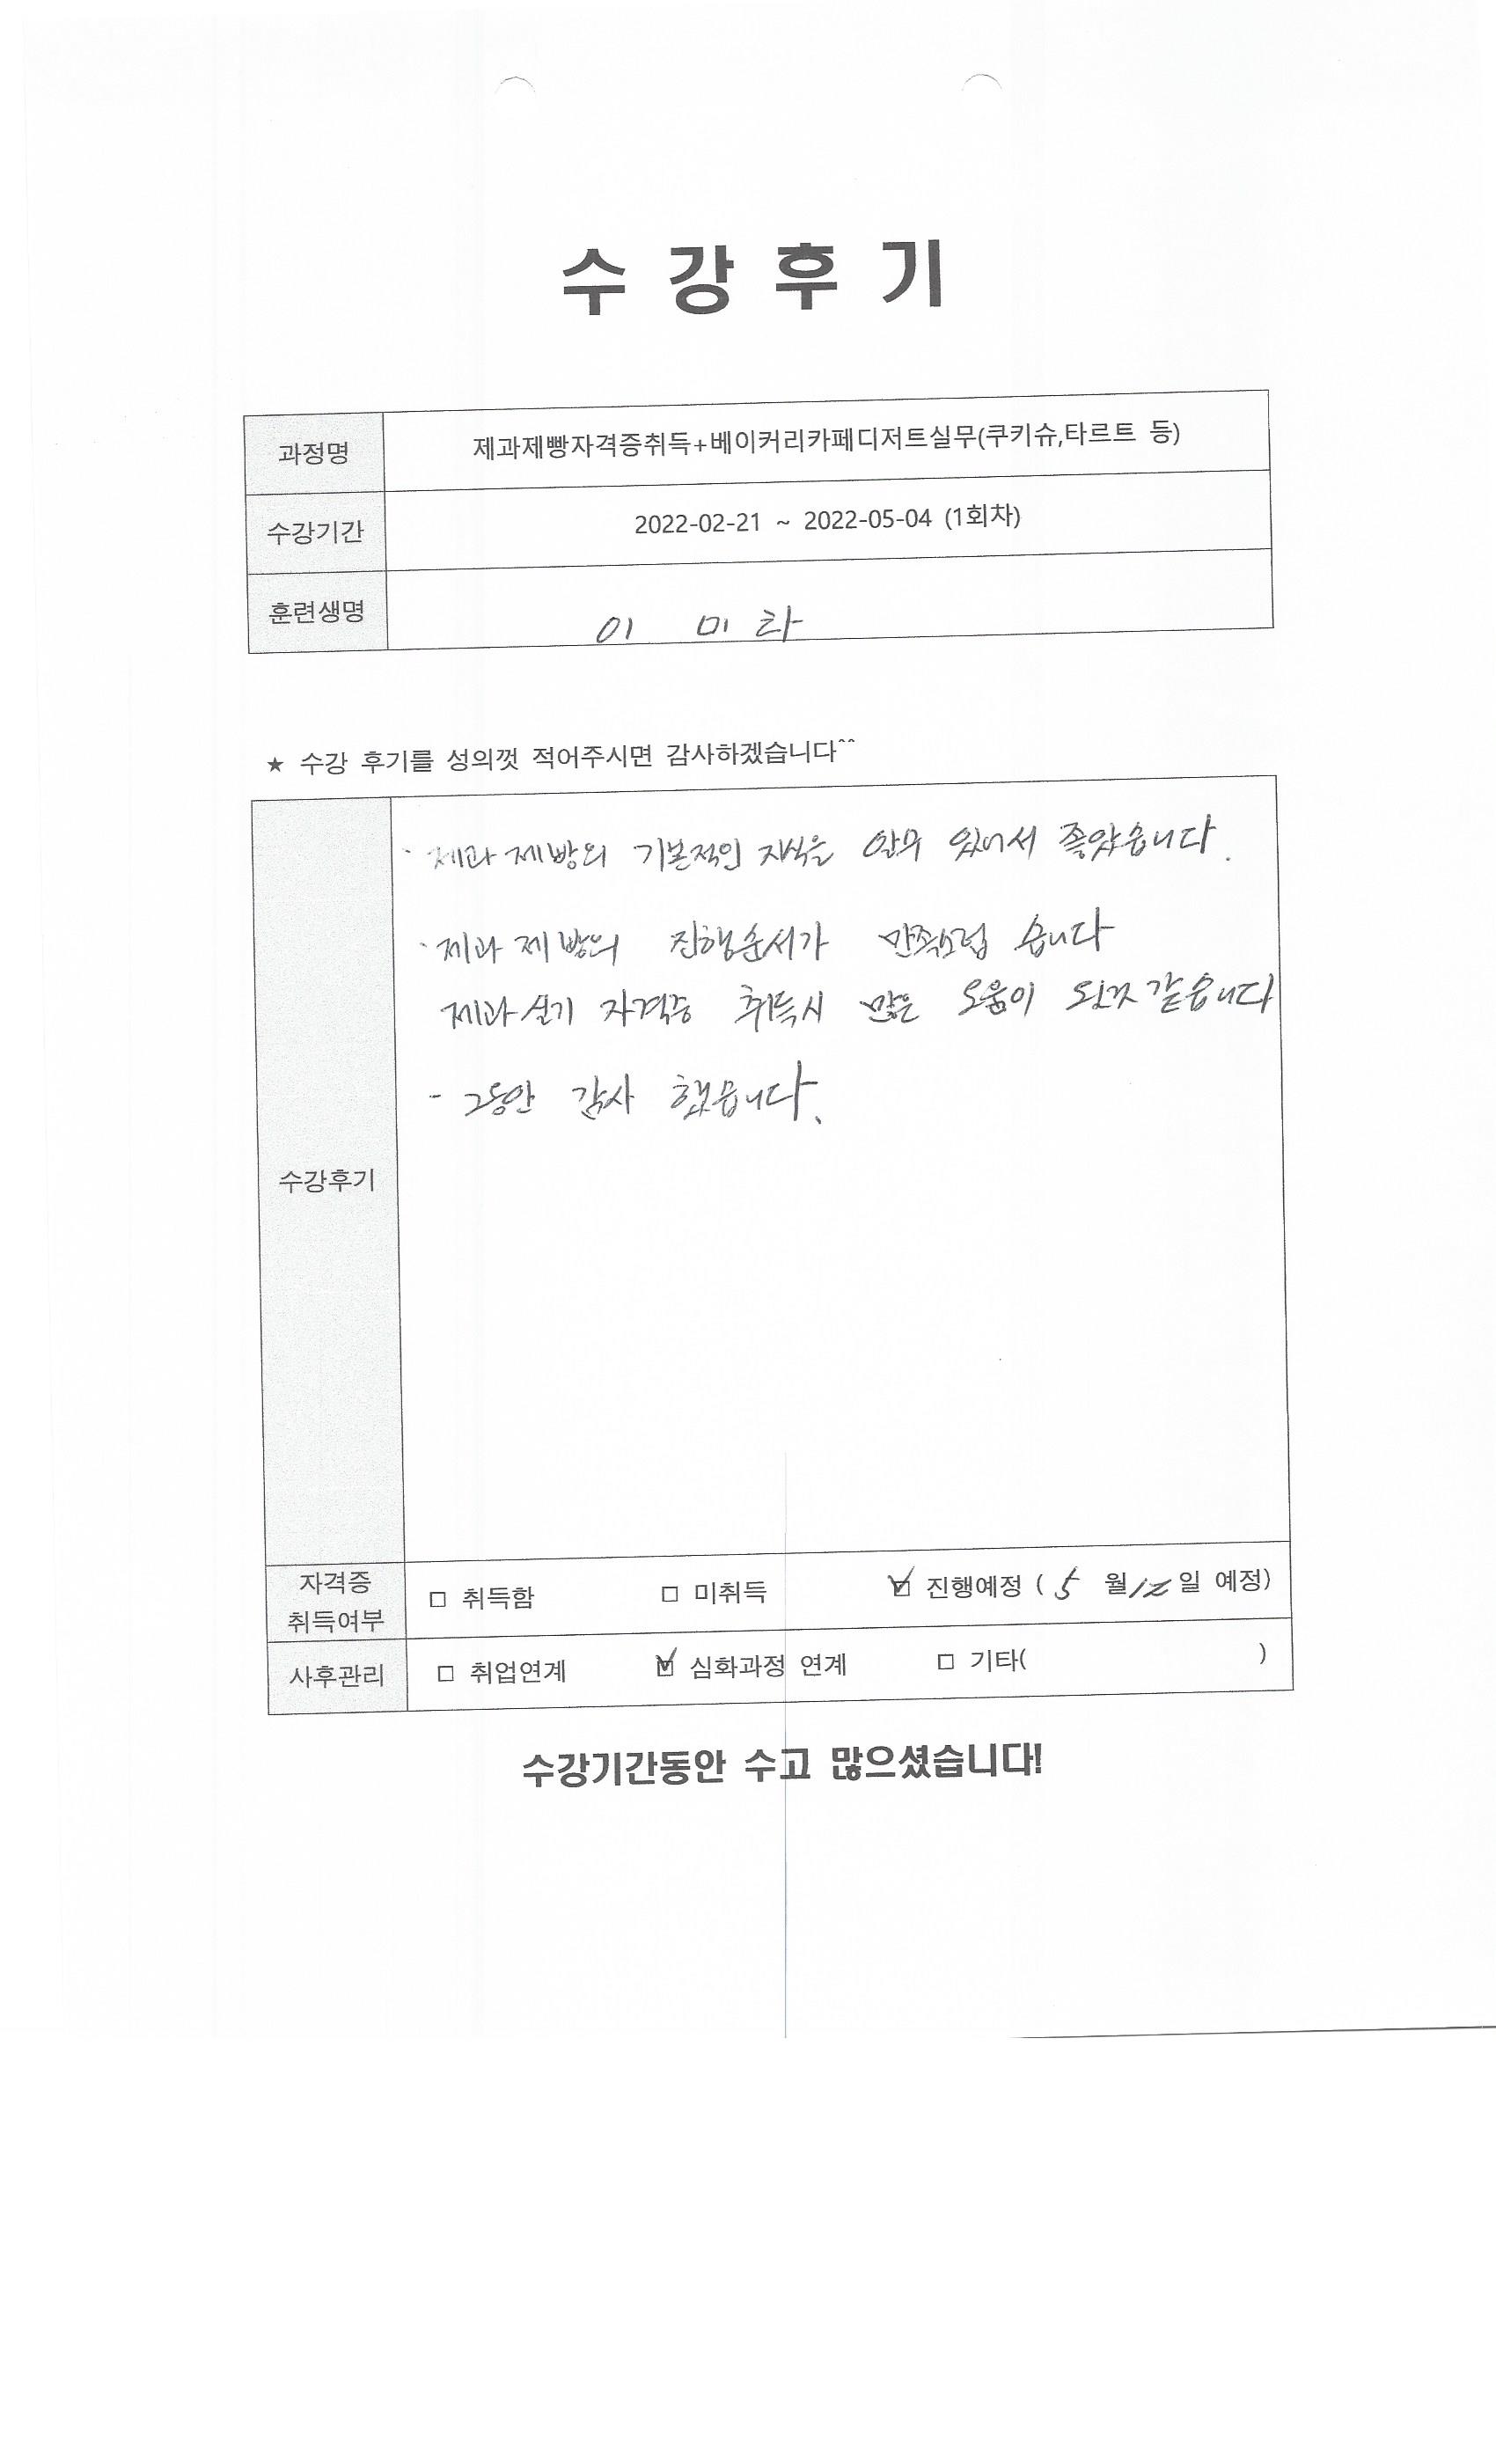 수 강 후 기
과정명 제과제빵자격증취득+베이커리카페디저트실무(쿠키슈,타르트 등)
수강기간 2022-02-21 ~ 2022-05-04 (1회차)
훈련생명 이 미
★ 수강 후기를 성의껏 적어주시면 감사하겠습니다^^
수강후기
· 제과 제빵의 기본적인 지식을 알수 있어서 좋았습니다.
· 제과 제빵의 진행순서가 만족스럽 습니다
제과실기 자격증 취득시 많은 도움이 같습니다
- 그동안 감사 했습니다.
자격증 취득여부 □ 취득함 □ 미취득 ☑ 진행예정 ( 5 월 12 일 예정)
사후관리 □ 취업연계 ☑ 심화과정 연계 □ 기타( )
수강기간동안 수고 많으셨습니다!